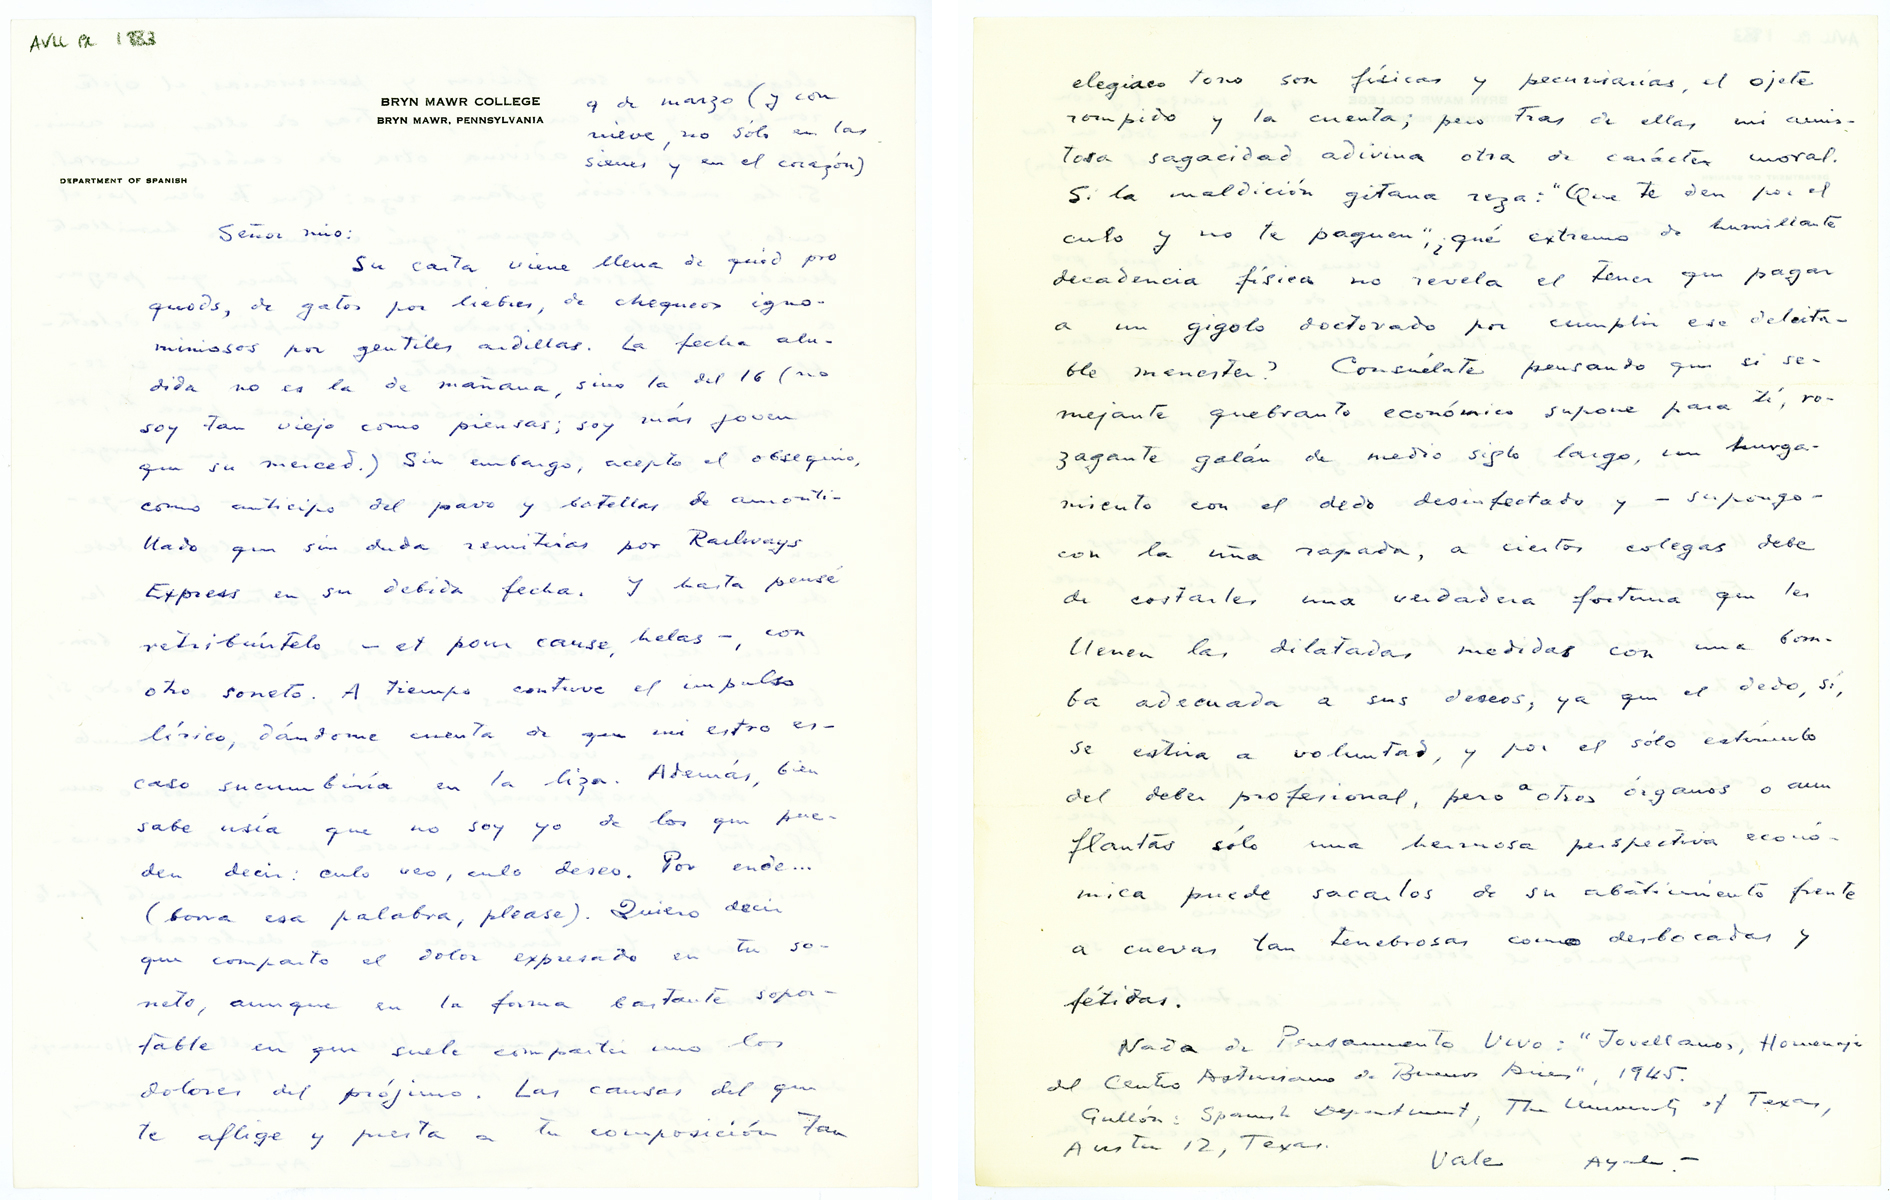 AVLL PR 1983
BRYN MAWR COLLEGE
BRYN MAWR, PENNSYLVANIA
DEPARTMENT OF SPANISH
9 de marzo (y con
nieve, no sólo en las
sienes y en el corazón)
Señor mío:
Su carta viene llena de quid pro
quods, de gatos por liebres, de chequeos igno-
miniosos por gentiles ardillas. La fecha alu-
dida no es la de mañana, sino la del 16 (no
soy tan viejo como piensas; soy más joven
que su merced.) Sin embargo, acepto el obsequio,
como anticipo del pavo y botellas de amonti-
llado que sin duda remitirás por Railways
Express en su debida fecha. Y hasta pensé
retribúirtelo - et pour cause, helas -, con
otro soneto. A tiempo contuve el impulso
lírico, dándome cuenta de que mi estro es-
caso sucumbiría en la liza. Además, bien
sabe usía que no soy yo de los que pue-
den decir: culo veo, culo deseo. Por ende...
(borra esa palabra, please). Quiero decir
que comparto el dolor expresado en tu so-
neto, aunque en la forma bastante sopor-
table en que suele compartir uno los
dolores del prójimo. Las causas del que
te aflige y presta a tu composición tan
elegiaco tono son físicas y pecuniarias, el ojete
rompido y la cuenta; pero tras de ellas mi amis-
tosa sagacidad adivina otra de carácter moral.
Si la maldición gitana reza: "Que te den por el
culo y no te paguen", ¿qué extremo de humillante
decadencia física no revela el tener que pagar
a un gigolo doctorado por cumplir ese deleita-
ble menester? Consuélate pensando que si se-
mejante quebranto económico supone para tí, ro-
zagante galán de medio siglo largo, un hurga-
miento con el dedo desinfectado y - supongo -
con la uña rapada, a ciertos colegas debe
de costarles una verdadera fortuna que les
llenen las dilatadas medidas con una bom-
ba adecuada a sus deseos, ya que el dedo, sí,
se estira a voluntad, y por el sólo estímulo
del deber profesional, pero a otros órganos o aun
flautas sólo una hermosa perspectiva econó-
mica puede sacarlos de su abatimiento frente
a cuevas tan tenebrosas como desbocadas y
fétidas.
Nada de Pensamiento Vivo: "Jovellanos, Homenaje
del Centro Asturiano de Buenos Aires", 1945.
Gullón: Spanish Department, The University of Texas,
Austin 12, Texas.
Vale Ayala.-